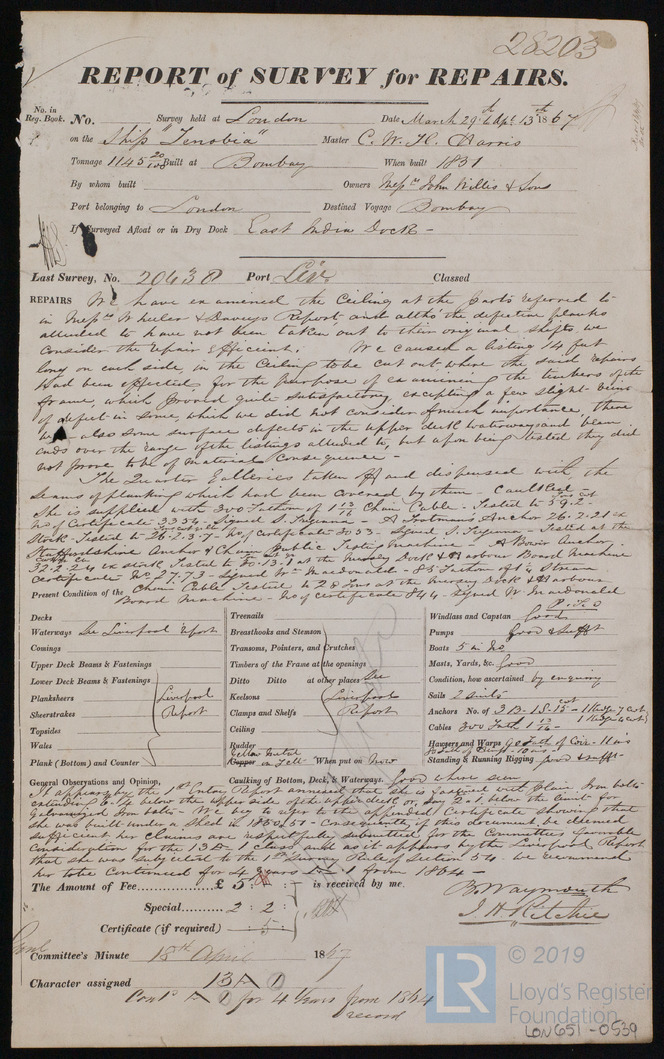 28203
REPORT of SURVEY for REPAIRS.
No. in Reg. Book. No. Survey held at London Date March 29th & Apl. 13th 1867
on the Ship "Zenobia" Master C. W. H. Harris
Tonnage 1145 20/100 Built at Bombay When built 1851
By whom built Owners Messrs John Willis & Sons
Port belonging to London Destined Voyage Bombay
If Surveyed Afloat or in Dry Dock East India Dock -
Last Survey, No. 20438 Port Liv. Classed
REPAIRS We have examined the Ceiling at the parts referred to
in Messrs Wheeler & Davey's Report and altho' the defective planks
alluded to have not been taken out to their original shifts, we
consider the repair efficient. We caused a listing 14 feet
long on each side, in the Ceiling to be cut out where the said repairs
had been effected, for the purpose of examining the timbers of the
frame, which proved quite satisfactory, excepting a few slight
of defect in some, which we did not consider of much importance, there
also some surface defects in the upper deck waterways and beam
ends over the range of the listings alluded to, but upon being tested they did
not prove to be of material Consequence -
The Quarter Galleries taken off and dispensed with, the
seams of planking which had been covered by them Caulked -
She is supplied with 300 Fathom of 1 13/16 Chain Cable - Tested to
No of Certificate 3334 - Signed - A Trotmans Anchor 26.2.21 ex
Stock - Tested to 26.2.3.7 - No of Certificate - Signed - Tested at the
Staffordshire Anchor & Chain Public Testing Machine - A Bower Anchor,
32.2.24 ex stock Tested to 30.13.1 at the Mersey Dock & Harbour Board Machine
Certificate No 2773 - Signed Wm Macdonald - 85 Fathom of 1 1/4 Stream
Chain Cable Tested to 28 Tons at the Mersey Dock & Harbour
Board Machine - No of Certificate 844 - Signed W. Macdonald
P.T.O
Present Condition of the
Decks
Waterways See Liverpool Report
Comings
Upper Deck Beams & Fastenings
Lower Deck Beams & Fastenings
Planksheers Liverpool
Sheerstrakes Report
Topsides
Wales
Plank (Bottom) and Counter
Treenails
Breasthooks and Stemson
Transoms, Pointers, and Crutches
Timbers of the Frame at the openings
Ditto Ditto at other places See
Keelsons Liverpool
Clamps and Shelfs Report
Ceiling
Rudder
Yellow Metal
Copper on Felt When put on Now
Caulking of Bottom, Deck, & Waterways. Good where seen
Windlass and Capstan Good
Pumps Good & Sufft
Boats 5 in No
Masts, Yards, &c. Good
Condition, how ascertained by enquiry
Sails 2 Suits
Anchors No. of 3 B - 1 S - 15 cwt - 1 Kedge 7 cwt
1 Kedge 4 cwt
Cables 300 Fath 1 13/16 -
Hawsers and Warps 90 Fath of Coir - 11 ins
Standing & Running Rigging good & suff
General Observations and Opinion,
It appears by the 1st Entry Report annexed that she is fastened with plain Iron bolts
extending 6-4 below the upper side of the upper deck or, say 2-1 below the limit for
Galvanized Iron bolts - We beg to refer to the appended Certificate shewing that
she was built under a Shed in 1850/51 - Consequently if this document, be deemed
sufficient her claims are respectfully submitted for the Committee's favorable
consideration for the 13 A 1 class and as it appears by the Liverpool Report
that she was subjected to the 1st Survey Rules Section 54 - we recommend
her to be Continued for 4 years A 1 from 1864 -
The Amount of Fee £ 5 : : - is received by me.
Special 2 : 2 : -
Certificate (if required) - : 5 : -
B. Waymouth
J. H. Ritchie
Committee's Minute 18th April 1867
Character assigned 13 A 1
Contd A 1 for 4 Years from 1864
record
LON651-0539
© 2019
LR
Lloyd's Register
Foundation